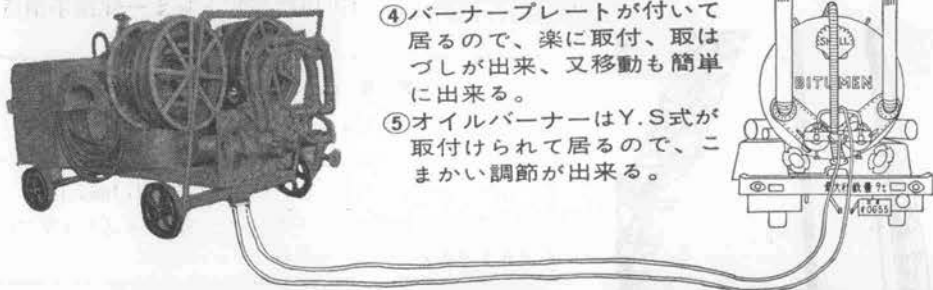 ④バーナープレートが付いて
居るので、楽に取付、取は
づしが出来、又移動も簡単
に出来る。
⑤オイルバーナーはY.S式が
取付けられて居るので、こ
まかい調節が出来る。
SHELL
BITUMEN
最大積載量9t
0655